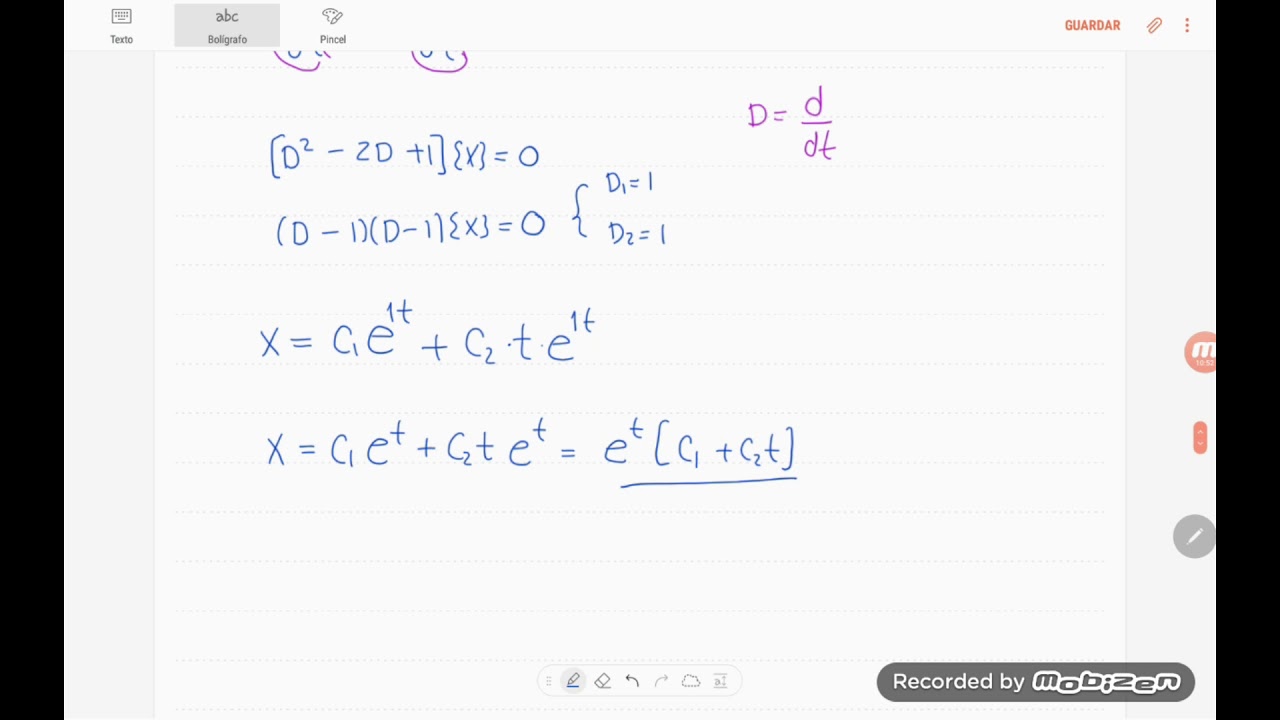 Texto
abc
Bolígrafo
Pincel
GUARDAR
D = d/dt
[D² - 2D + 1]{X} = 0
(D - 1)(D - 1]{X} = 0 { D₁ = 1
D₂ = 1
X = C₁e^1t + C₂·t·e^1t
X = C₁e^t + C₂t e^t = e^t [C₁ + C₂t]
Recorded by MOBIZEN